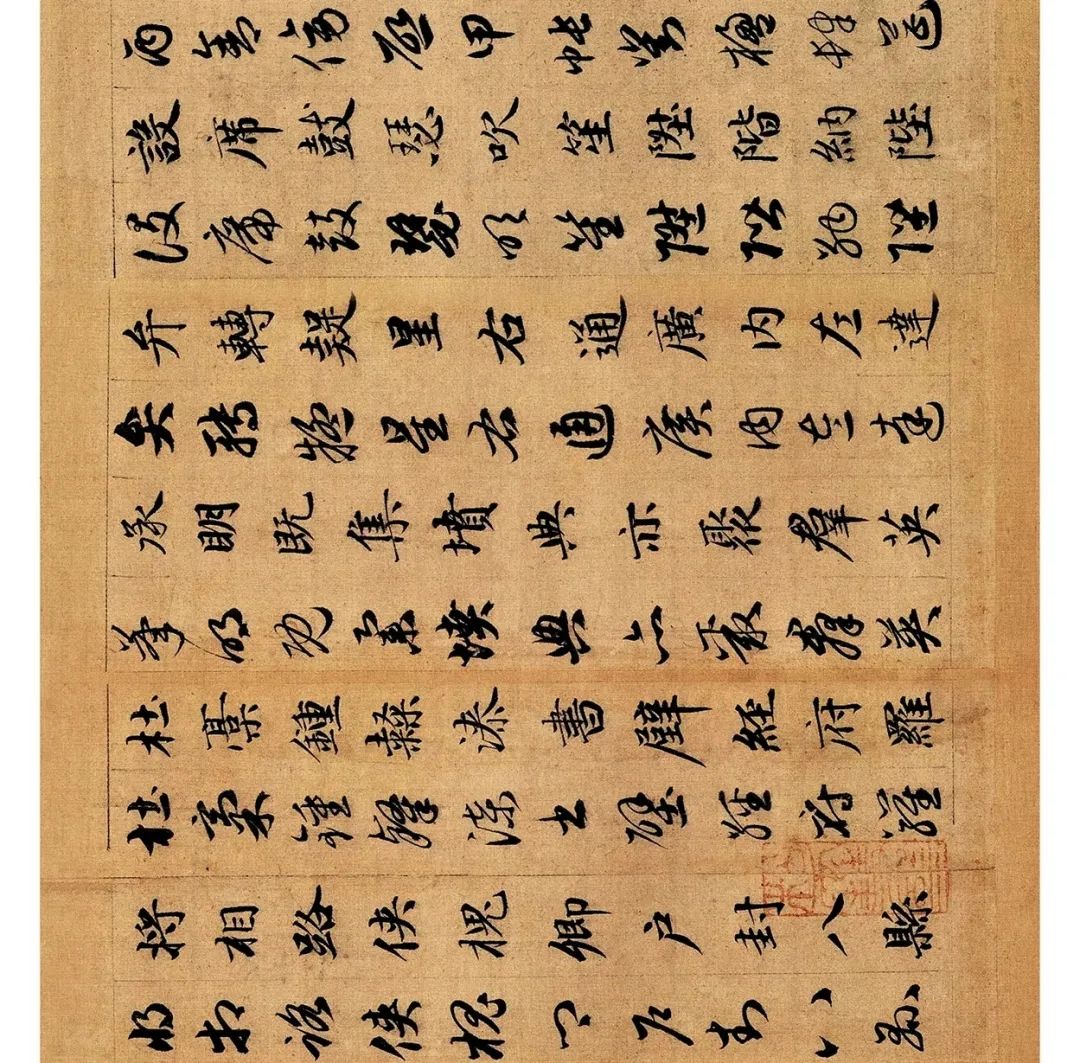 丙舍傍啓甲帳對楹肆筵
設席鼓瑟吹笙陞階納陛
設席鼓瑟吹笙陞階納陛
弁轉疑星右通廣內左達
弁轉疑星右通廣內左達
承明既集墳典亦聚羣英
承明既集墳典亦聚羣英
杜稾鍾隸漆書壁經府羅
杜稾鍾隸漆書壁經府羅
將相路俠槐卿戶封八縣
將相路俠槐卿戶封八縣